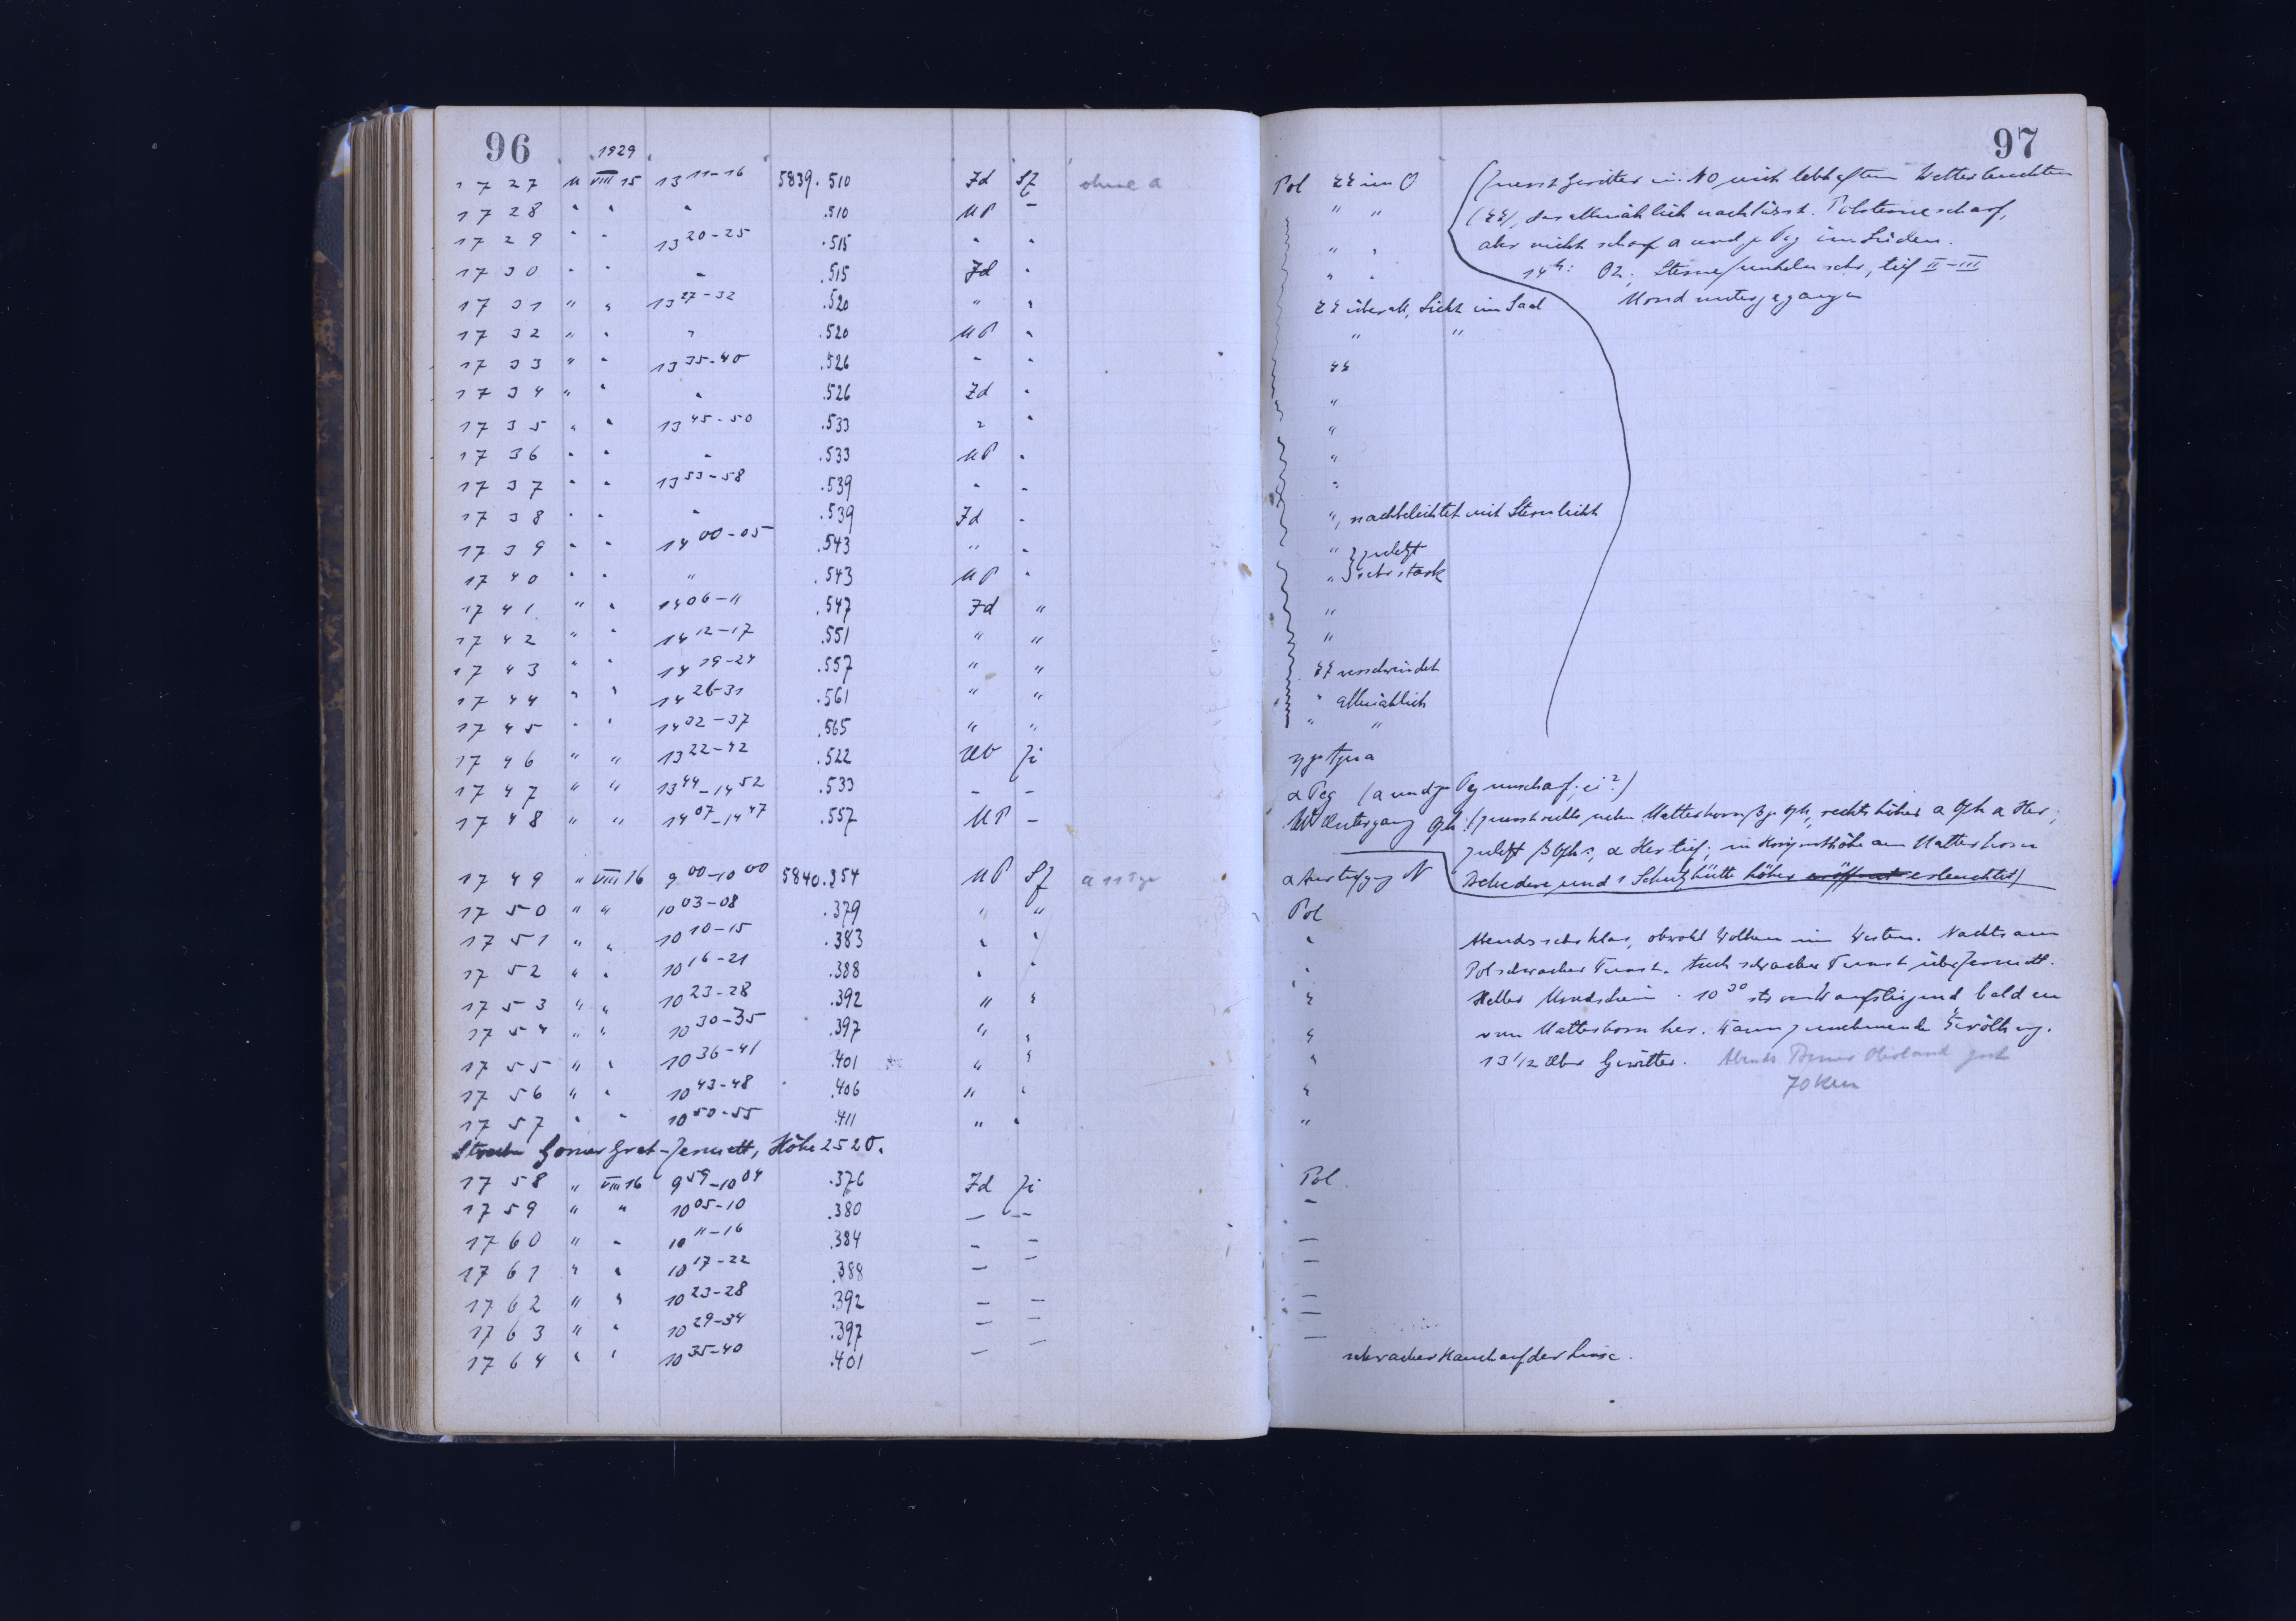 96
1929
1727 M VIII 15 13 11-16 5839.510 Zd Sf ohne a
1728 " " " .510 UP -
1729 " " 13 20-25 .515 " "
1730 " " " .515 Zd "
1731 " " 13 27-32 .520 " "
1732 " " " .520 UP "
1733 " " 13 35-40 .526 " "
1734 " " " .526 Zd "
1735 " " 13 45-50 .533 " "
1736 " " " .533 UP "
1737 " " 13 53-58 .539 " "
1738 " " " .539 Zd "
1739 " " 14 00-05 .543 " "
1740 " " " .543 UP "
1741 " " 14 06-11 .547 Zd "
1742 " " 14 12-17 .551 " "
1743 " " 14 19-24 .557 " "
1744 " " 14 26-31 .561 " "
1745 " " 14 32-37 .565 " "
1746 " " 13 22-42 .522 UV Zi
1747 " " 13 44-14 52 .533 - -
1748 " " 14 07-14 47 .557 UP -
1749 " VIII 16 9 00-10 00 5840.354 UP Sf
1750 " " 10 03-08 .379 " "
1751 " " 10 10-15 .383 " "
1752 " " 10 16-21 .388 " "
1753 " " 10 23-28 .392 " "
1754 " " 10 30-35 .397 " "
1755 " " 10 36-41 .401 " "
1756 " " 10 43-48 .406 " "
1757 " " 10 50-55 .411 " "
Gornergrat-Zermatt, Höhe 2520.
1758 " VIII 16 9 59-10 04 .376 Zd Zi
1759 " " 10 05-10 .380 - -
1760 " " 10 11-16 .384 - -
1761 " " 10 17-22 .388 - -
1762 " " 10 23-28 .392 - -
1763 " " 10 29-34 .397 - -
1764 " " 10 35-40 .401 - -
97
Pol im O
(zuerst Gewitter in NO mit lebhaftem Wetterleuchten
das allmählich nachlässt. Polsterne scharf,
aber nicht scharf α und γ Peg im Süden.
14h: 02; Sterne funkeln sehr, tief II-III
Mond untergegangen
überall, Licht im Saal
" "
", nachbelichtet mit Sternlicht
" } zuletzt
" } sehr stark
"
"
verschwindet
" allmählich
" "
α Peg (α und γ Peg unscharf; ei?)
Untergang Oph: (zuerst rechts neben Matterhorn β γ Oph, rechts höher α Oph α Her;
zuletzt β Oph; α Her tief; in Horizonthöhe am Matterhorn
Belvedere und 1 Schutzhütte höher eröffnet erleuchtet)
α N
Pol
Abends sehr klar, obwohl Wolken im Westen. Nachts am
Pol schwacher Dunst. Auch schwacher Dunst über Zermatt.
Heller Mondschein. 10 30 aufsteigend bald
vom Matterhorn her. Dann zunehmende Bewölkung.
13 1/2 Uhr Gewitter. Abends Berner Oberland gut
70 km
Pol
-
-
-
-
-
-
schwacher Hauch auf der Linse.